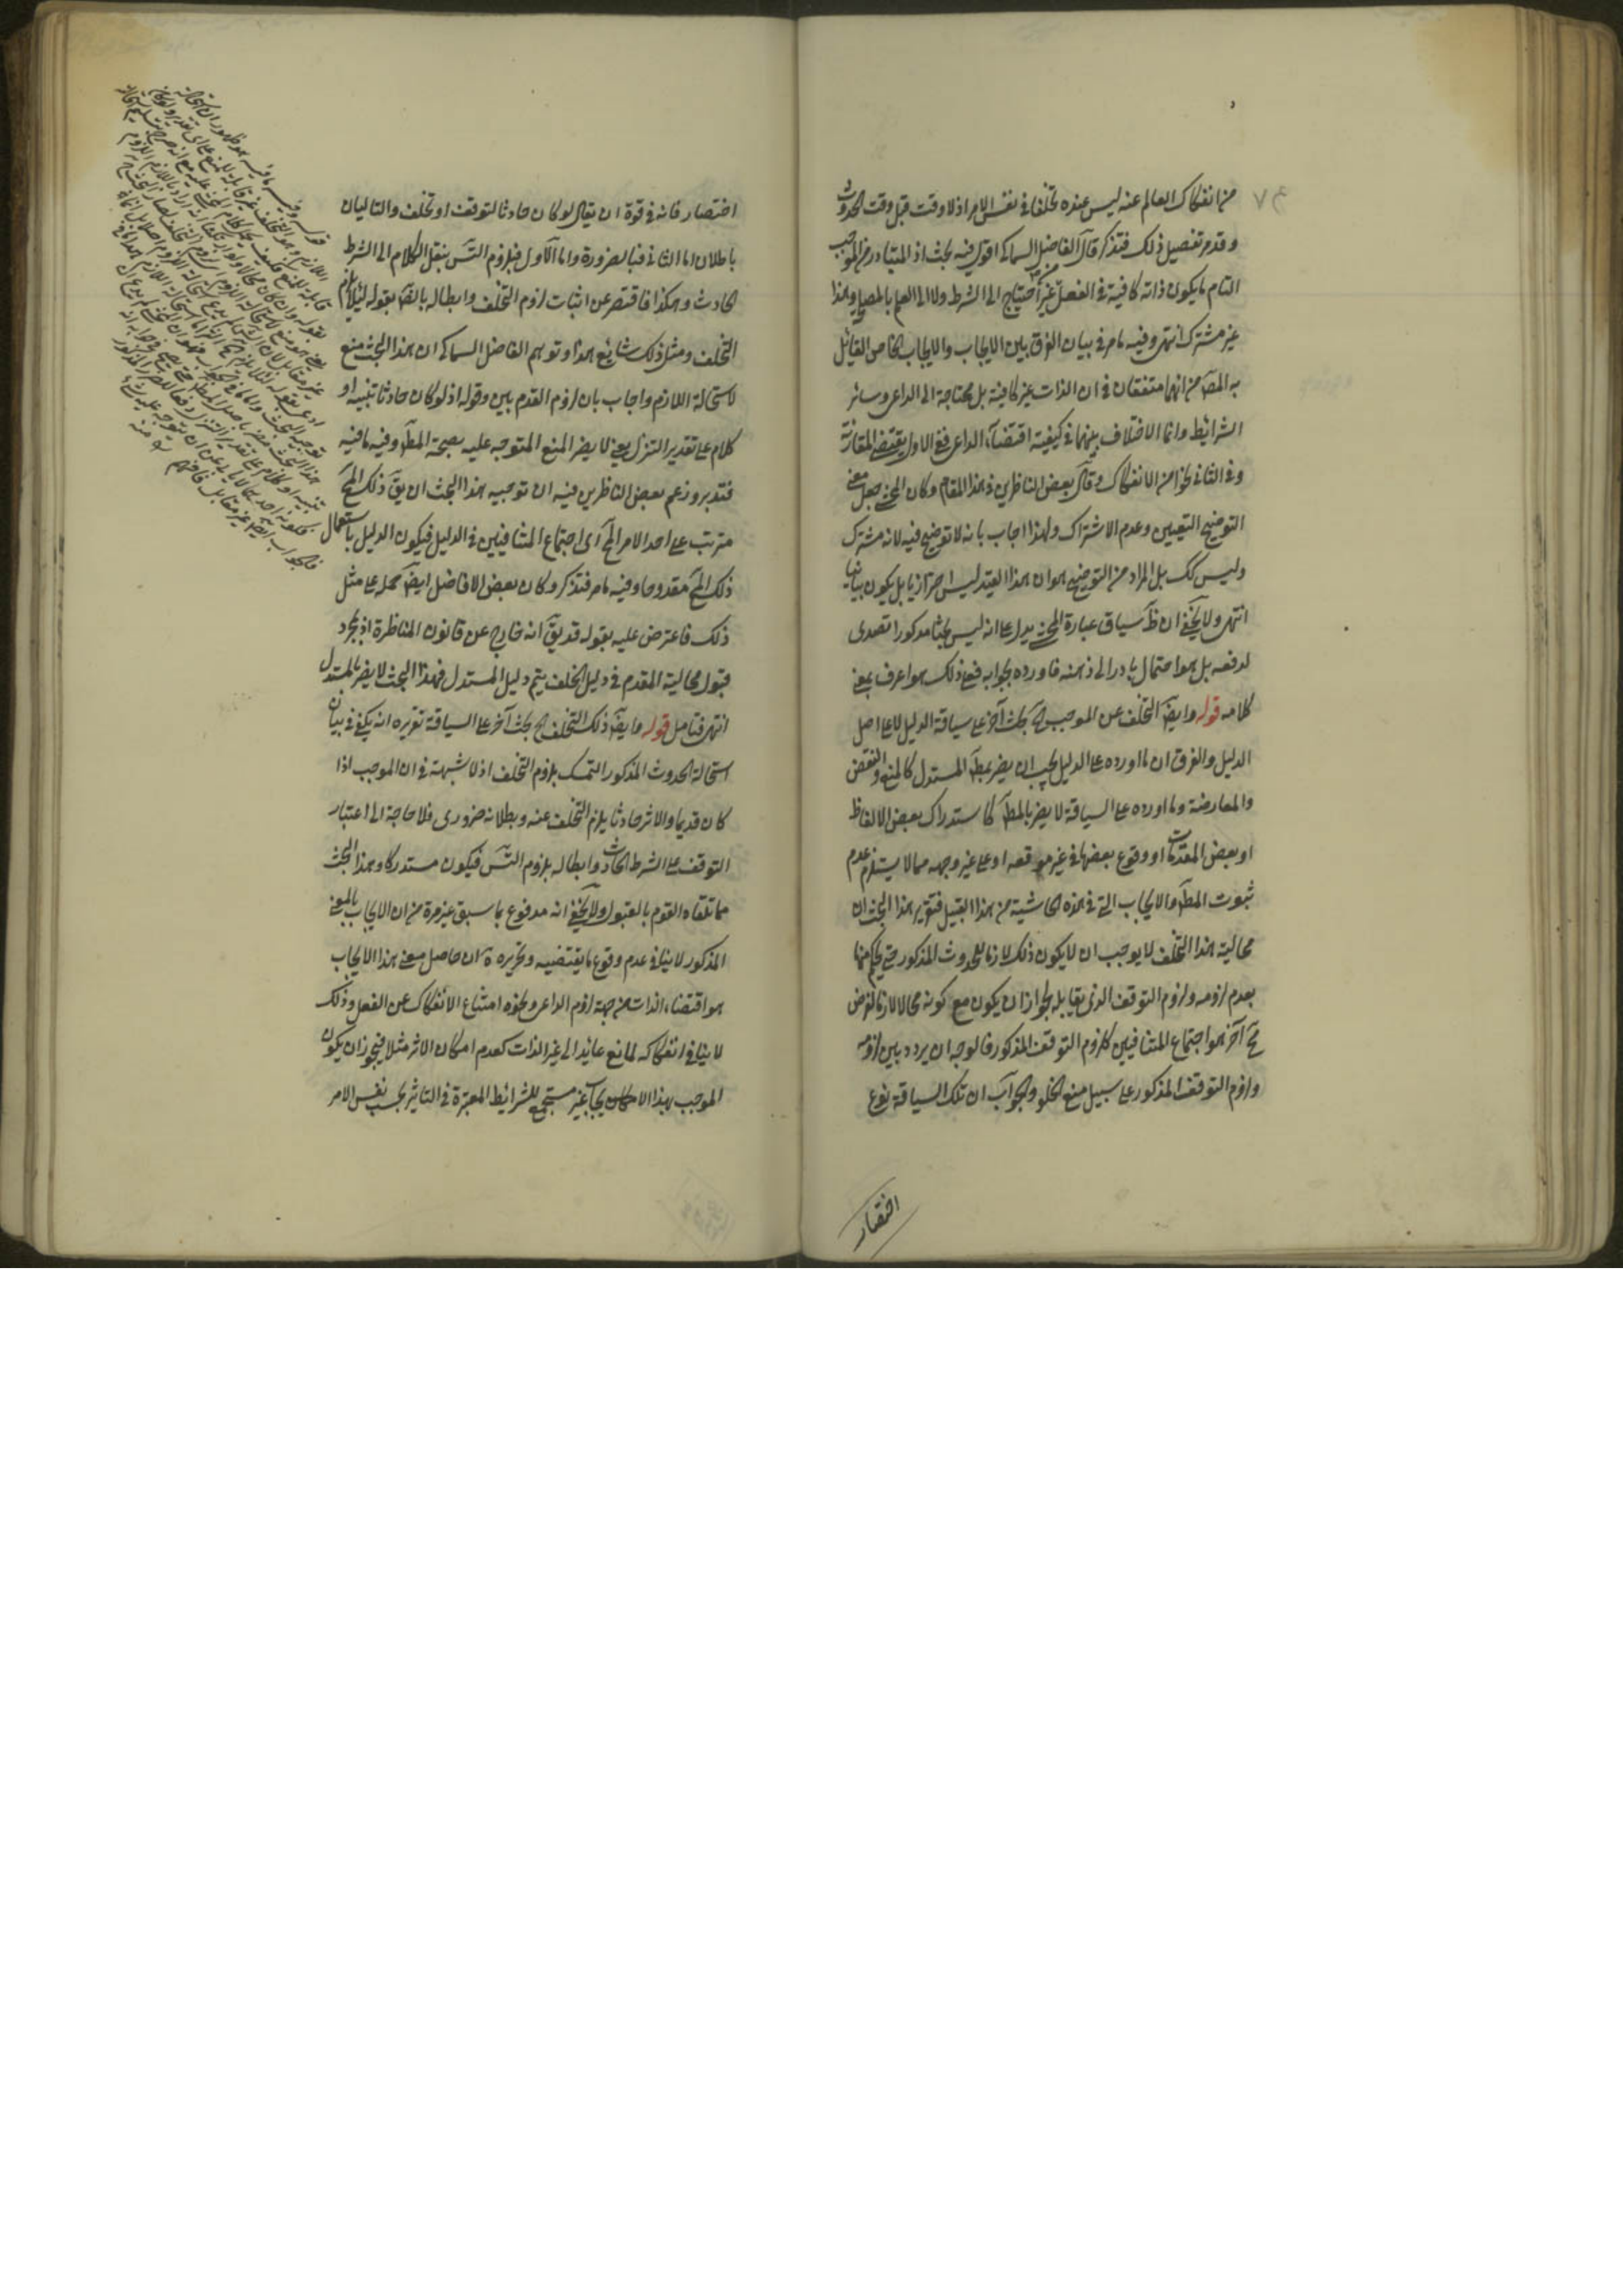 من انفكاك العالم عنه ليس عنده تخلفا في نفس الامر اذ لا وقت قبل وقت الحدوث
وقد مر تفصيل ذلك فتذكر قال الفاضل السماكى اقول فيه بحث اذ المتبادر من الموجب
التام ما يكون ذاته كافية في الفعل من غير احتياج الى الشرط ولا الى العلم بالمصلحة وهذا
غير مشترك انتهى وفيه ما مر في بيان الفرق بين الايجاب والايجاب الخاص القائل
به المصـ من انهما متفقان في ان الذات غير كافية بل محتاجة الى الداعى وسائر
الشرائط وانما الاختلاف بينهما في كيفية اقتضاء الداعى ففي الاول يقتضى المقارنة
وفي الثانى نحوا من الانفكاك وقال بعض الناظرين في هذا المقام وكان المحشى جعل معنى
التوضيح التعيين وعدم الاشتراك ولهذا اجاب بانه لا توضيح فيه لانه مشترك
وليس كك بل المراد من التوضيح هو ان هذا القيد ليس احترازيا بل يكون بيانيا
انتهى ولا يخفى ان ظ سياق عبارة المحشى يدل على انه ليس بحثا مذكورا تصدى
لدفعه بل هو احتمال بادر الى ذهنه فاورده بجوابه فعلى ذلك هو اعرف بمعنى
كلامه قوله وايضـ التخلف عن الموجب الخ بحث آخر على سياقة الدليل لا على اصل
الدليل والفرق ان ما اورده على الدليل يجب ان يضر بمطـ المستدل كالمنع والنقض
والمعارضة وما اورده على السياقة لا يضر بالمطـ كاستدراك بعض الالفاظ
او بعض المقدمات او وقوع بعضها في غير موقعه او على غير وجهه مما لا يستلزم عدم
ثبوت المطـ والايجاب التى في هذه الحاشية من هذا القبيل فتقرير هذا البحث ان
محالية هذا التخلف لا يوجب ان لا يكون ذلك لازما للحدوث المذكور حتى يحكم منها
بعدم لزومه ولزوم التوقف الذى يقابله لجواز ان يكون مع كونه محالا لازما لفرض
مح آخر هو اجتماع المتنافيين كلزوم التوقف المذكور فالوجه ان يردد بين لزومه
ولزوم التوقف المذكور على سبيل منع الخلو والجواب ان تلك السياقة نوع
اختصار
اختصار فانه في قوة ان يقال لو كان حادثا لتوقف او تخلف والتاليان
باطلان اما الثانى فبالضرورة واما الاول فبلزوم التس بنقل الكلام الى الشرط
الحادث وهكذا فاقتصر عن اثبات لزوم التخلف وابطاله بالنصـ بقوله لئلا يلزم
التخلف ومثل ذلك شائع هذا وتوهم الفاضل السماكى ان هذا البحث منع
لاستحالة اللازم واجاب بان لزوم القدم بين وقوله اذ لو كان حادثا تنبيه او
كلام على تقدير التنزل يعنى لا يضر المنع المتوجه عليه بصحة المطـ وفيه ما فيه
فتدبر وزعم بعض الناظرين فيه ان توجيه هذا البحث ان يق ذلك المح
مترتب على احد الامر المح اى اجتماع المتنافيين في الدليل فيكون الدليل باستعمال
ذلك المح مقدوحا وفيه ما مر فتذكر وكان بعض الافاضل ايضـ حمله على مثل
ذلك فاعترض عليه بقوله قد يق انه خارج عن قانون المناظرة اذ بمجرد
قبول محالية المقدم في دليل الخلف يتم دليل المستدل فهذا البحث لا يضر بالمستدل
انتهى فتامل قوله وايضـ ذلك التخلف الخ بحث آخر على السياقة تقريره انه يكفى في بيان
استحالة الحدوث المذكور التمسك بلزوم التخلف اذ لا شبهة في ان الموجب اذا
كان قديما والاثر حادثا يلزم التخلف عنه وبطلانه ضرورى فلا حاجة الى اعتبار
التوقف على الشرط الحادث وابطاله بلزوم التس فيكون مستدركا وهذا البحث
مما تلقاه القوم بالقبول ولا يخفى انه مدفوع بما سبق غير مرة من ان الايجاب بالمعنى
المذكور لا ينافى عدم وقوع ما يقتضيه وتحريره ان حاصل معنى هذا الايجاب
هو اقتضاء الذات من جهة لزوم الداعى ونحوه امتناع الانفكاك عن الفعل وذلك
لا ينافى انفكاكه لمانع عائد الى غير الذات كعدم امكان الاثر مثلا فيجوز ان يكون
الموجب بهذا الايجاب غير مستجمع للشرائط المعتبرة في التاثير بحسب نفس الامر